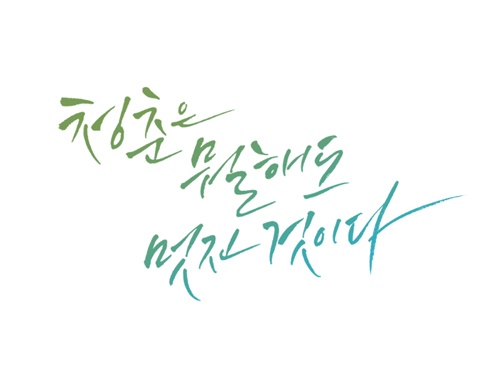 청춘은
뭐해도
멋진 것이다